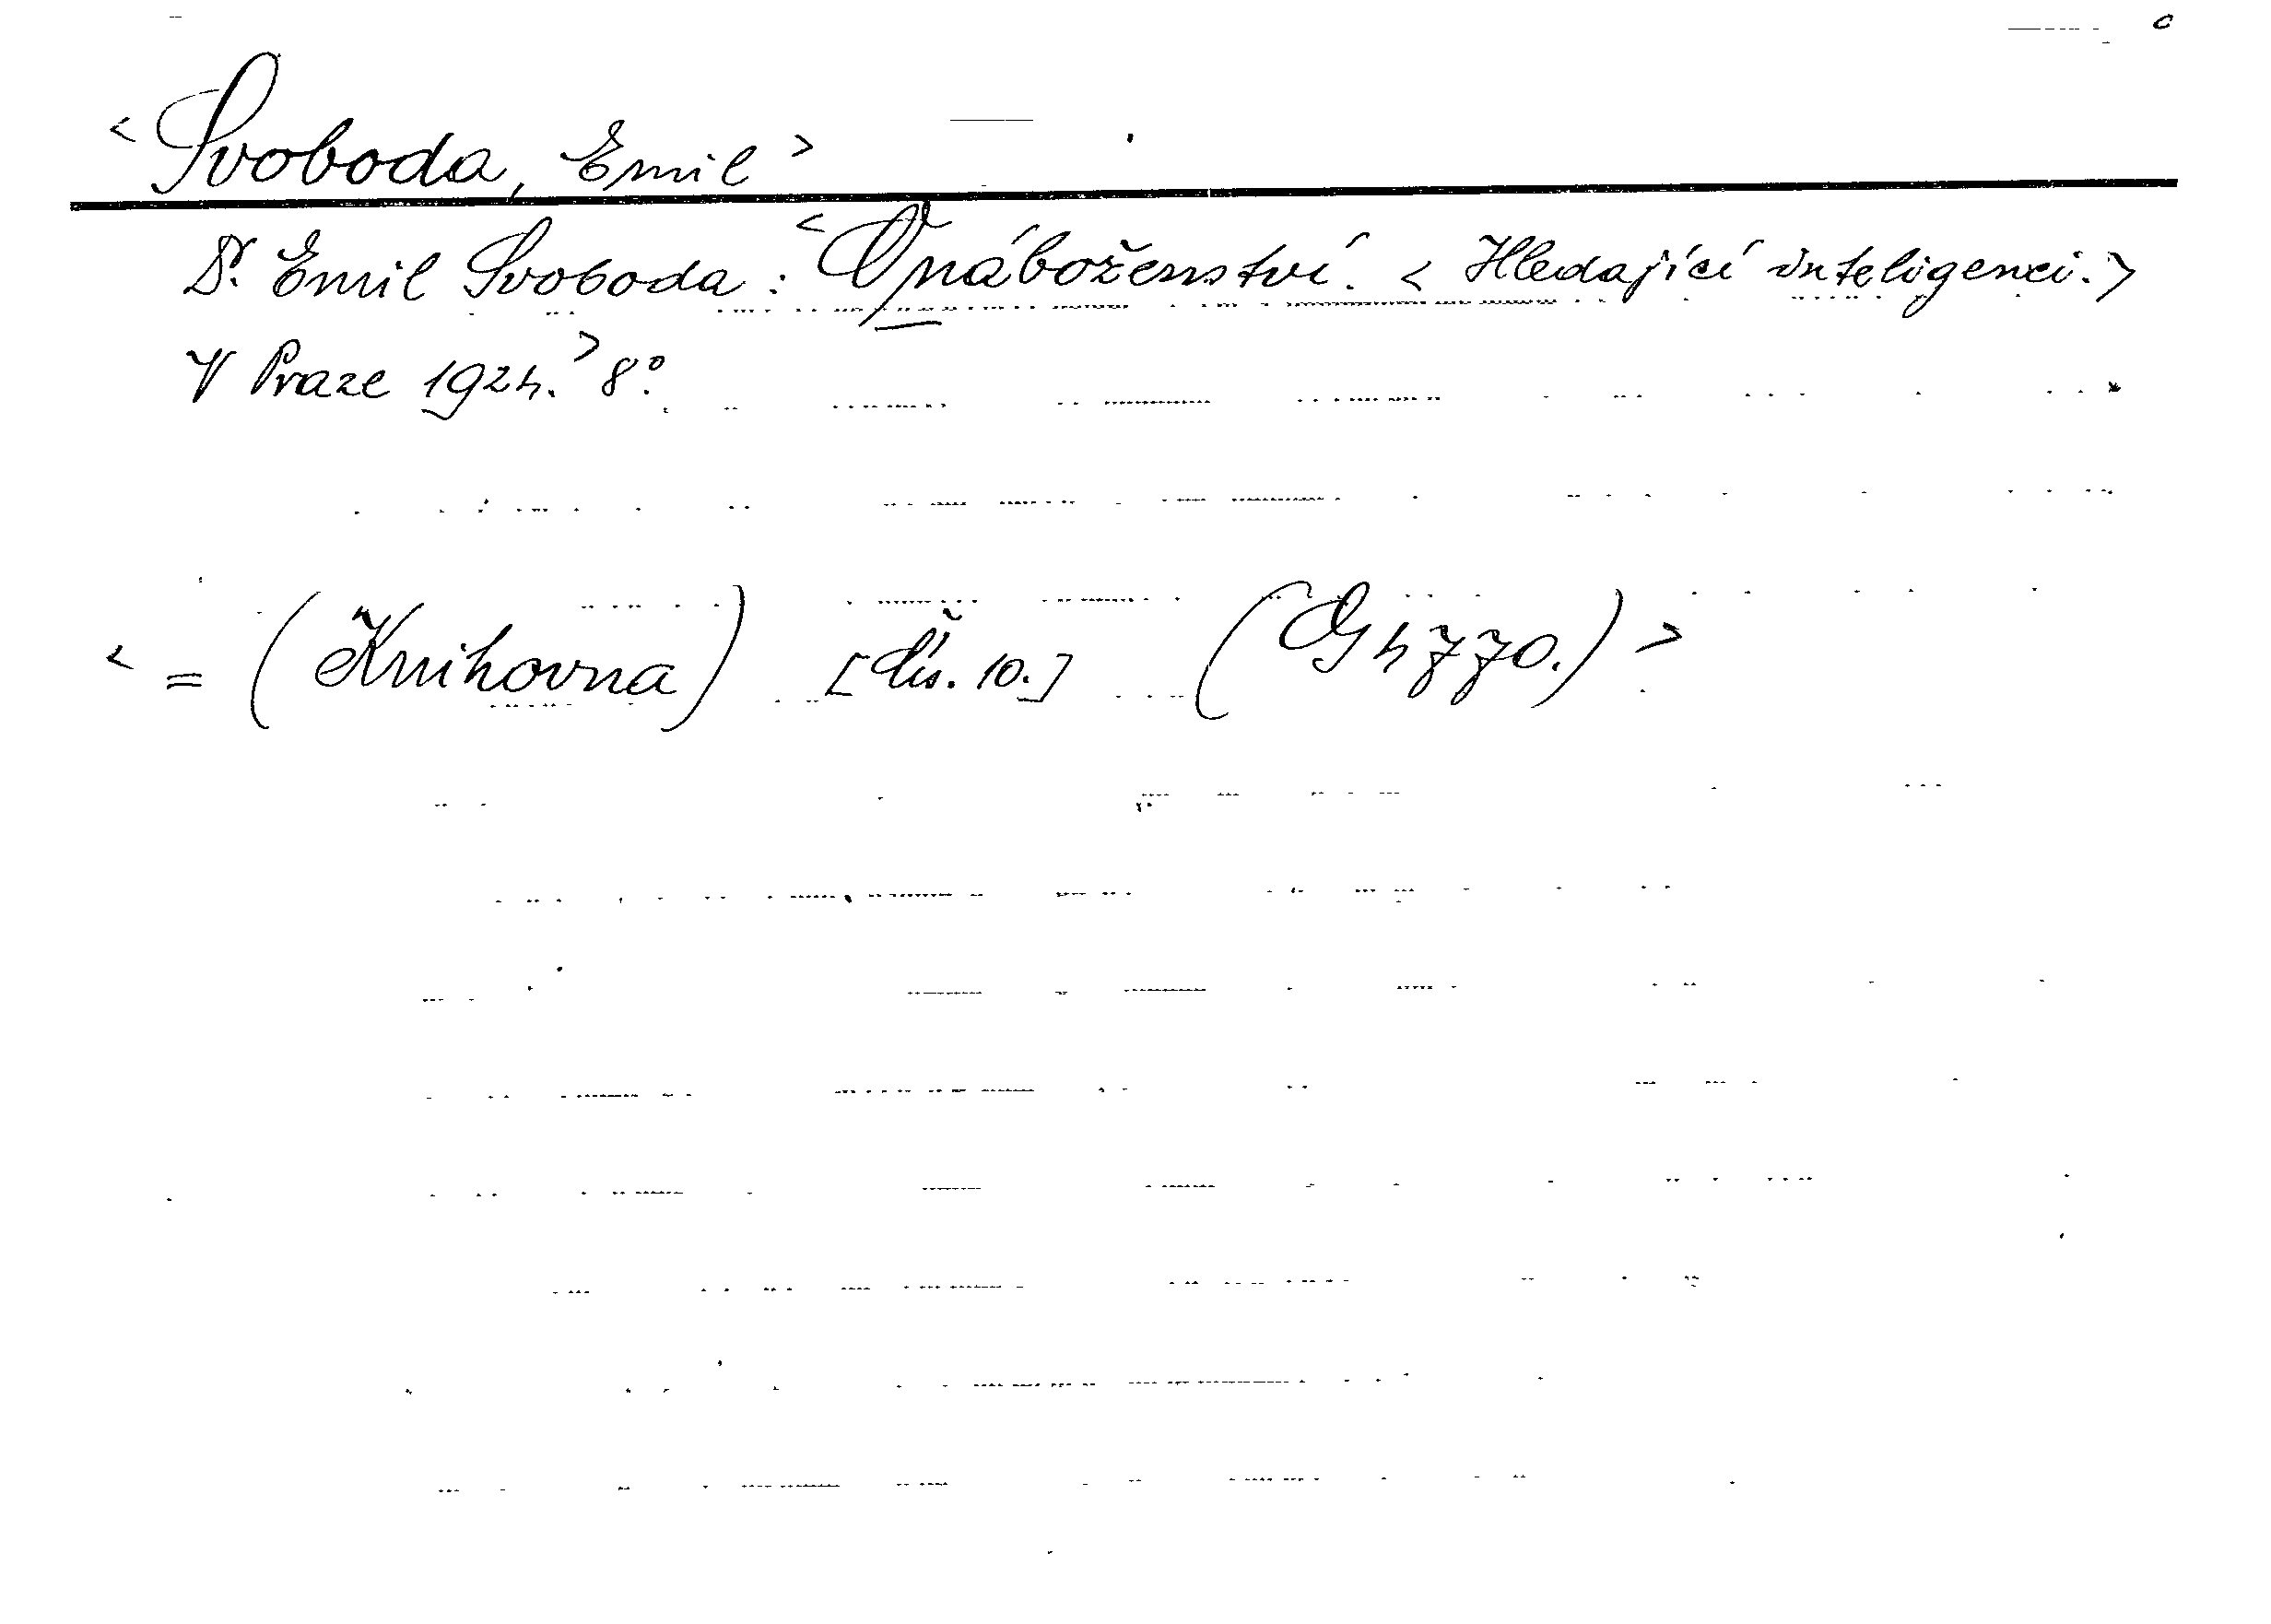 < Svoboda, Emil >
Dr. Emil Svoboda: < O náboženství. < Hledající inteligenci. >
V Praze 1924. > 8°.
< = (Knihovna) [Čís. 10.] (G 4770.) >